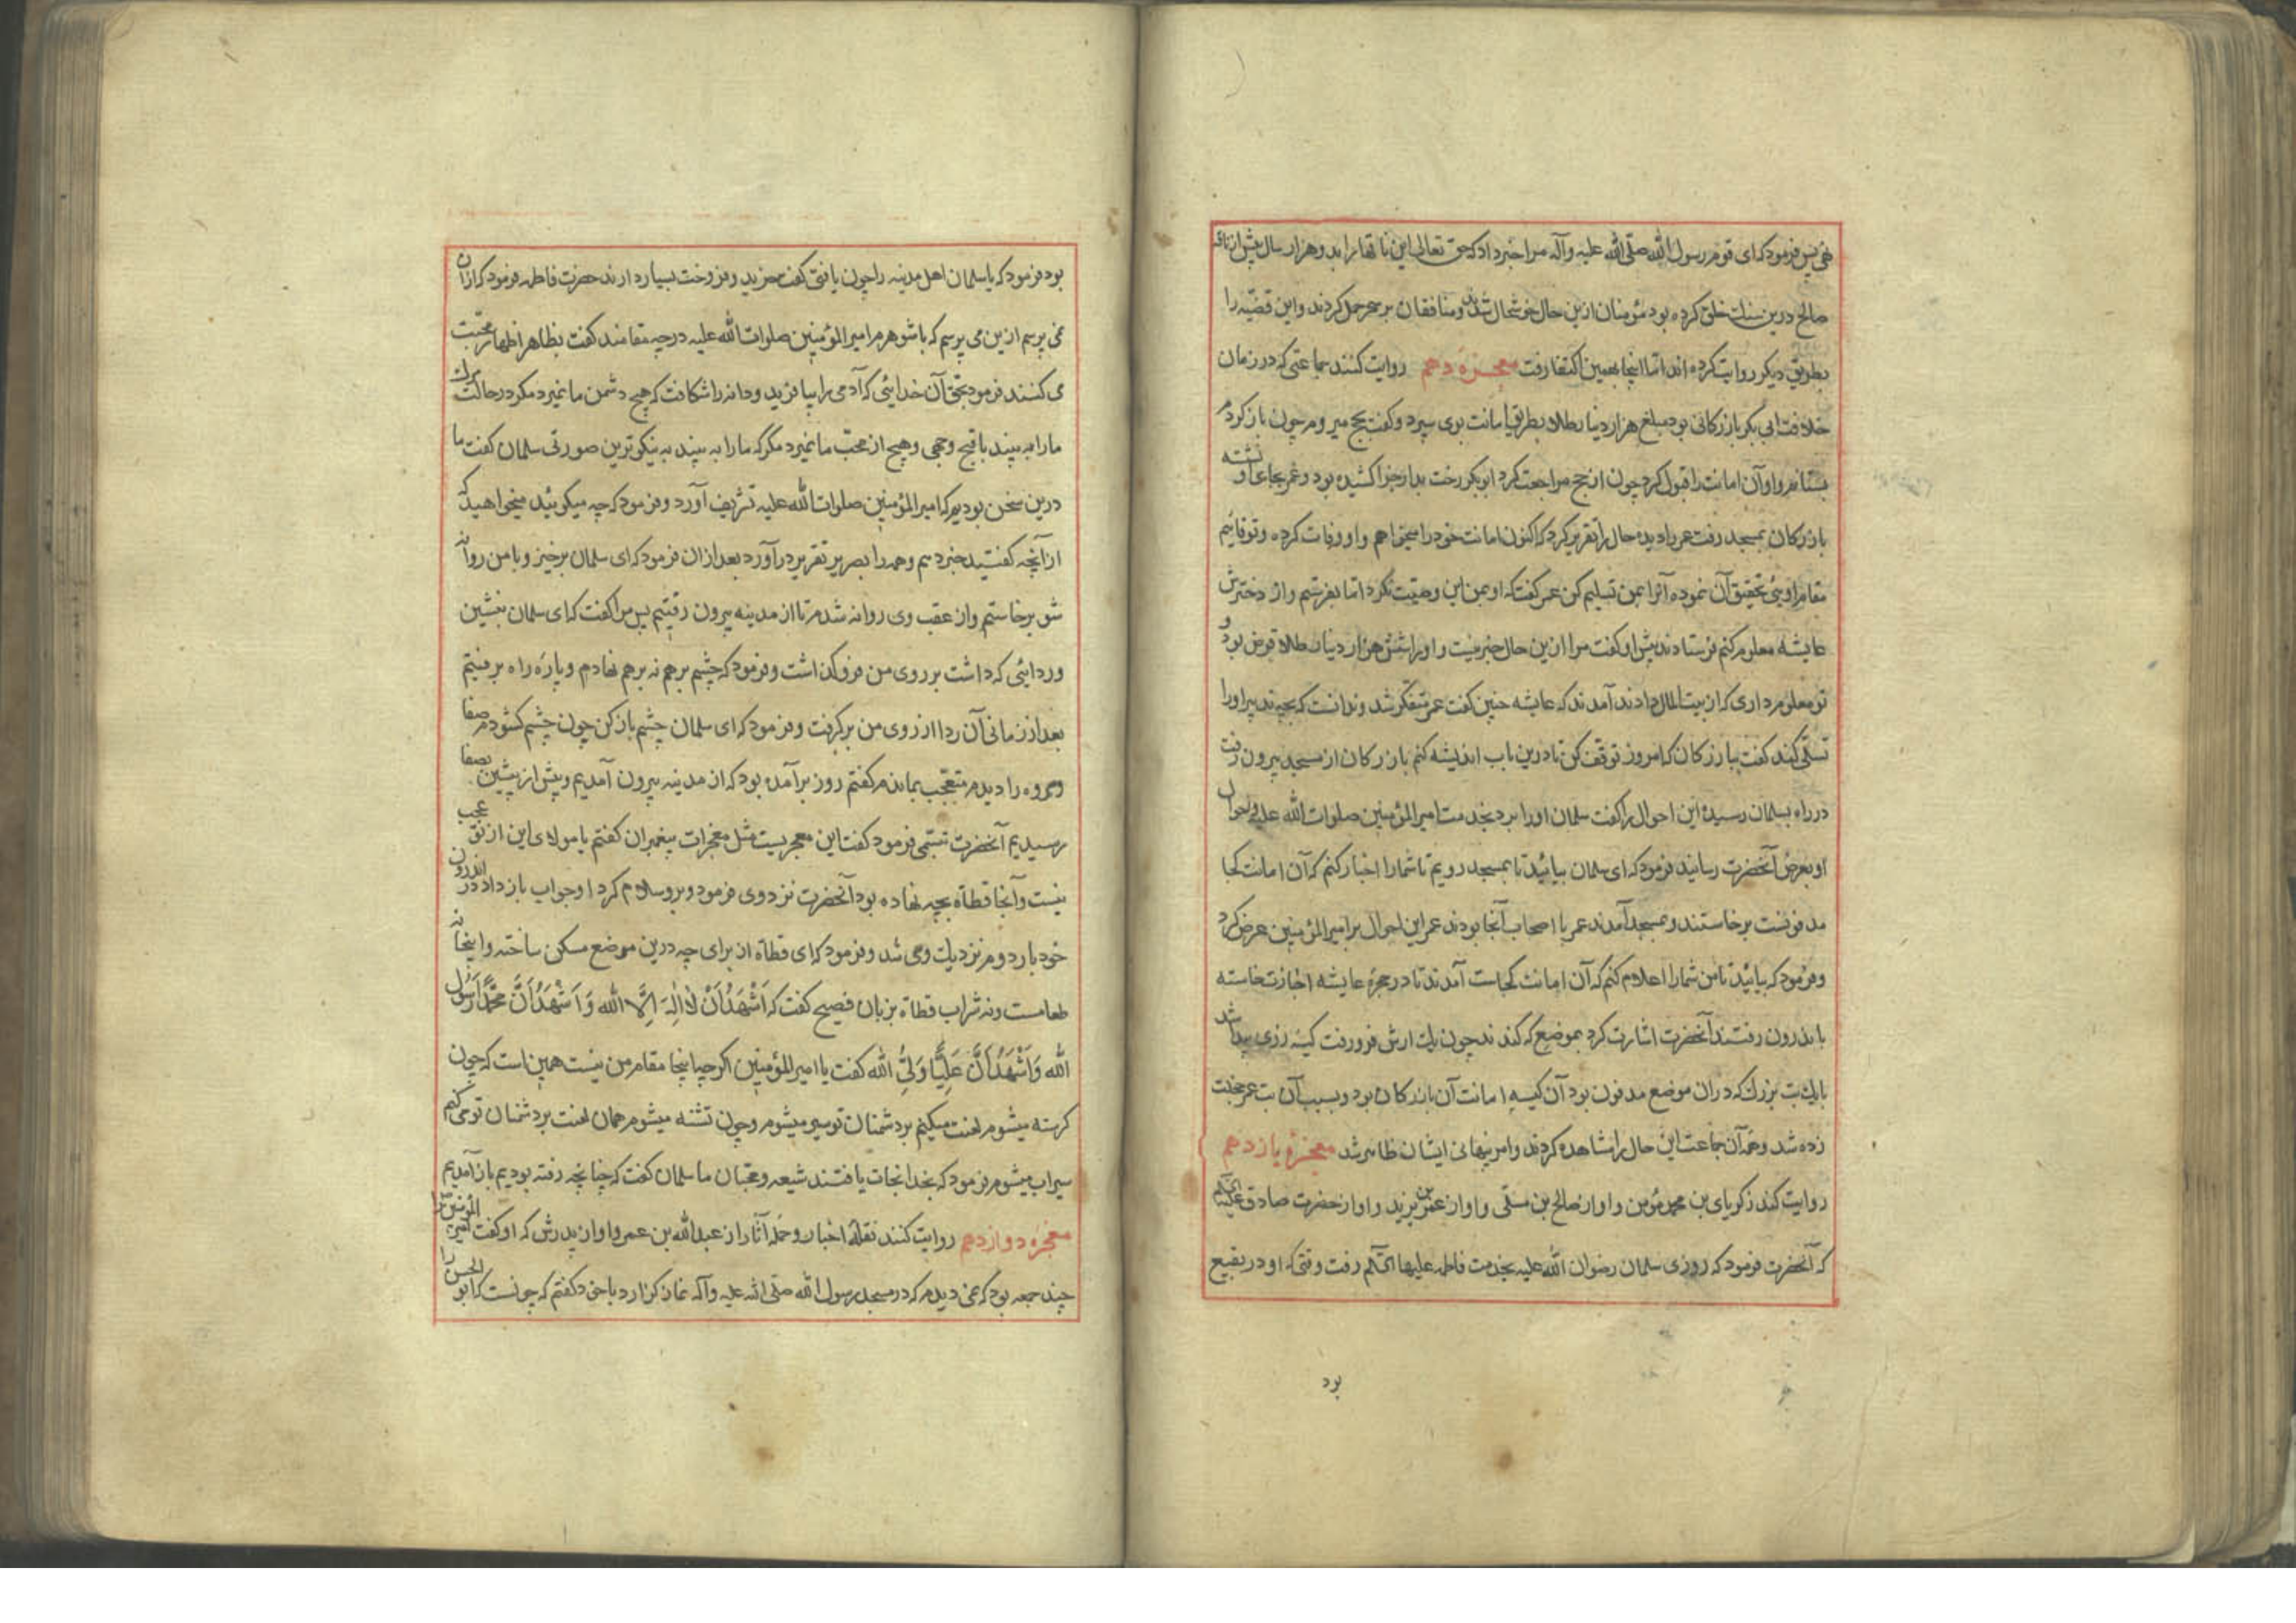 پس فرمود که ای قوم رسول الله صلّی الله علیه وآله مرا خبر داد که حق تعالی این ناقها را بدو هزار سال پیش از ناقه
صالح درین سنك خلق کرده بود مؤمنان ازین حال خوشحال شدند و منافقان بر سحر حمل کردند و این قضیّه را
بطریق دیکر روایت کرده اند امّا اینجا بهمین اکتفا رفت معجزهٔ دهم روایت کنند جماعتی که در زمان
خلافت ابی بکر بازرکانی بود مبلغ هزار دینار طلا بطریق امانت بوی سپرد و کفت بحج میروم چون باز کردم
بستانم و او آن امانت را قبول کرد چون از حج مراجعت کرد ابوبکر رخت بدار جزا کشیده بود و عمر بجای او نشسته
بازرکان بمسجد رفت عمر را دیده حال را تقریر کرد که اکنون امانت خود را میخواهم و او وفات کرده و تو قایم
مقام اوئی تحقیق آن نموده آنرا بمن تسلیم کن عمر کفت که او بمن این وصیّت نکرد امّا بفرستیم و از دخترش
عایشه معلوم کنم فرستادند پیش او کفت مرا ازین حال خبر نیست و او را شش هزار دینار طلا قرض بود و
تو معلوم داری که از بیت المال دادند آمدند که عایشه چنین کفت عمر متفکّر شد و ندانست که بچه تدبیر او را
تسلّی کند کفت ببازرکان که امروز توقف کن تا درین باب اندیشه کنم بازرکان از مسجد بیرون رفت
در راه بسلمان رسیده این احوال را کفت سلمان او را برد بخدمت امیر المؤمنین صلوات الله علیه و احوال
او بعرض آنحضرت رسانید فرمود که ای سلمان بیائید تا بمسجد رویم تا شما را اخبار کنم که آن امانت کجا
مدفونست برخاستند و بمسجد آمدند عمر با اصحاب آنجا بودند عمر این احوال بر امیر المؤمنین عرض کرد
و فرمود که بیائید تا من شما را اعلام کنم که آن امانت کجاست آمدند تا در حجرهٔ عایشه اجازت خواسته
باندرون رفتند آنحضرت اشارت کرد بموضع که کندند چون یك ارش فرو رفت کیسه زری پیدا شد
با یك بت بزرك که در ان موضع مدفون بود آن کیسه امانت آن بازرکان بود و بسبب آن بت عمر خجلت
زده شد و همه آن جماعت این حال را مشاهده کردند و امر پنهانی ایشان ظاهر شد معجزهٔ یازدهم
روایت کند زکریای بن محمد مؤمن و او از صالح بن و او از عمر بن یزید و او از حضرت صادق علیه السلم
که آنحضرت فرمود که روزی سلمان رضوان الله علیه بخدمت فاطمه علیها السّلم رفت وقتی که او در بقیع
بود
بود فرمود که یا سلمان اهل مدینه را چون یافتی کفت خرید و فروخت بسیار دارند حضرت فاطمه فرمود که از ان
نمی پرسم ازین می پرسم که با شوهرم امیر المؤمنین صلوات الله علیه در چه مقامند کفت بظاهر اظهار محبّت
می کنند فرمود بحق آن خدایئی که آدمی را بیافرید و دانه را شکافت که هیچ دشمن ما نمیرد مکر در حالت مرك
ما را به بیند باقبح وجهی و هیچ از محبّ ما نمیرد مکر که ما را به بیند به نیکوترین صورتی سلمان کفت ما
درین سخن بودیم که امیر المؤمنین صلوات الله علیه تشریف آورد و فرمود که چه میکوئید میخواهید که
از آنچه کفتید خبر دهم و همه را تقریر در آورد بعد از ان فرمود که ای سلمان برخیز و با من روانه
شو برخاستم و از عقب وی روانه شدم تا از مدینه بیرون رفتیم پس مرا کفت که ای سلمان بنشین
و ردایئی که داشت بر روی من فرو کذاشت و فرمود که چشم بر هم نه بر هم نهادم و پاره راه برفتیم
بعد از زمانی آن ردا از روی من بر کرفت و فرمود که ای سلمان چشم باز کن چون چشم کشودم صفا
و مروه را دیدم متعجّب بماندم کفتم روز بر آمده بود که از مدینه بیرون آمدیم و پیش از پیشین بصفا
رسیدیم آنحضرت تبسّمی فرمود کفت این معجزیست مثل معجزات پیغمبران کفتم یا مولای این از تو عجب
نیست و آنجا قطاة بچه نهاده بود آنحضرت نزد وی فرمود و برو سلام کرد او جواب باز داد در اندرون
خود بار دوم نزدیك وی شد و فرمود که ای قطاة از برای چه درین موضع مسکن ساخته و اینجا نه
طعامست و نه شراب قطاة بزبان فصیح کفت که اَشْهَدُ اَنْ لاٰ اِلٰهَ اِلَّا الله وَ اَشْهَدُ اَنَّ مُحَمَّدًا رَسُولُ
الله وَ اَشْهَدُ اَنَّ عَلِیًّا وَلِیُّ الله کفت یا امیر المؤمنین اکرچه اینجا مقام من نیست همین است که چون
کرسنه میشوم لعنت میکنم بر دشمنان تو سیر میشوم و چون تشنه میشوم همان لعنت بر دشمنان تو می کنم
سیراب میشوم فرمود که بخدا نجات یافتند شیعه و محبّان ما سلمان کفت که چنانچه رفته بودیم باز آمدیم
معجزه دوازدهم روایت کنند نقلهٔ اخبار و حملهٔ آثار از عبد الله بن عمر و او از پدرش که او کفت امیر المؤمنین را
چند جمعه بود که نمی دیدم که در مسجد رسول الله صلّی الله علیه و آله نماز کزارد با خود کفتم که چونست که ابو الحسن را